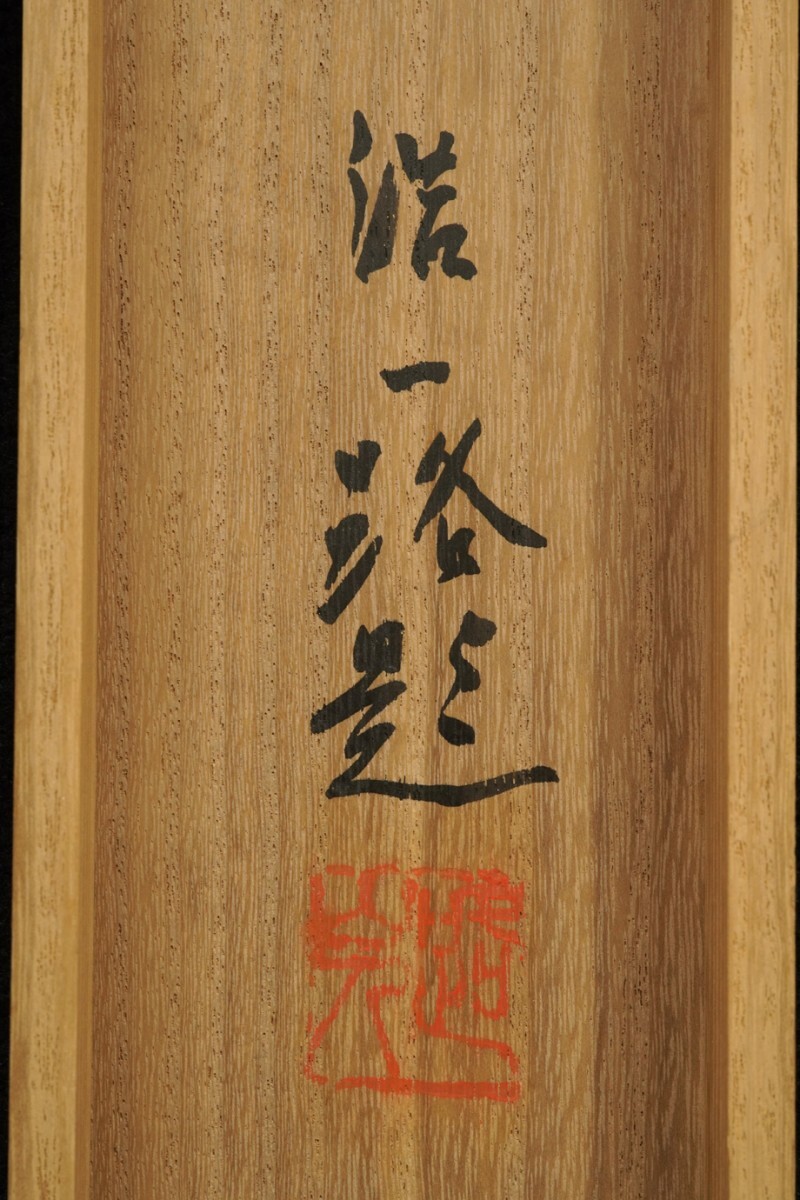 浩一路題